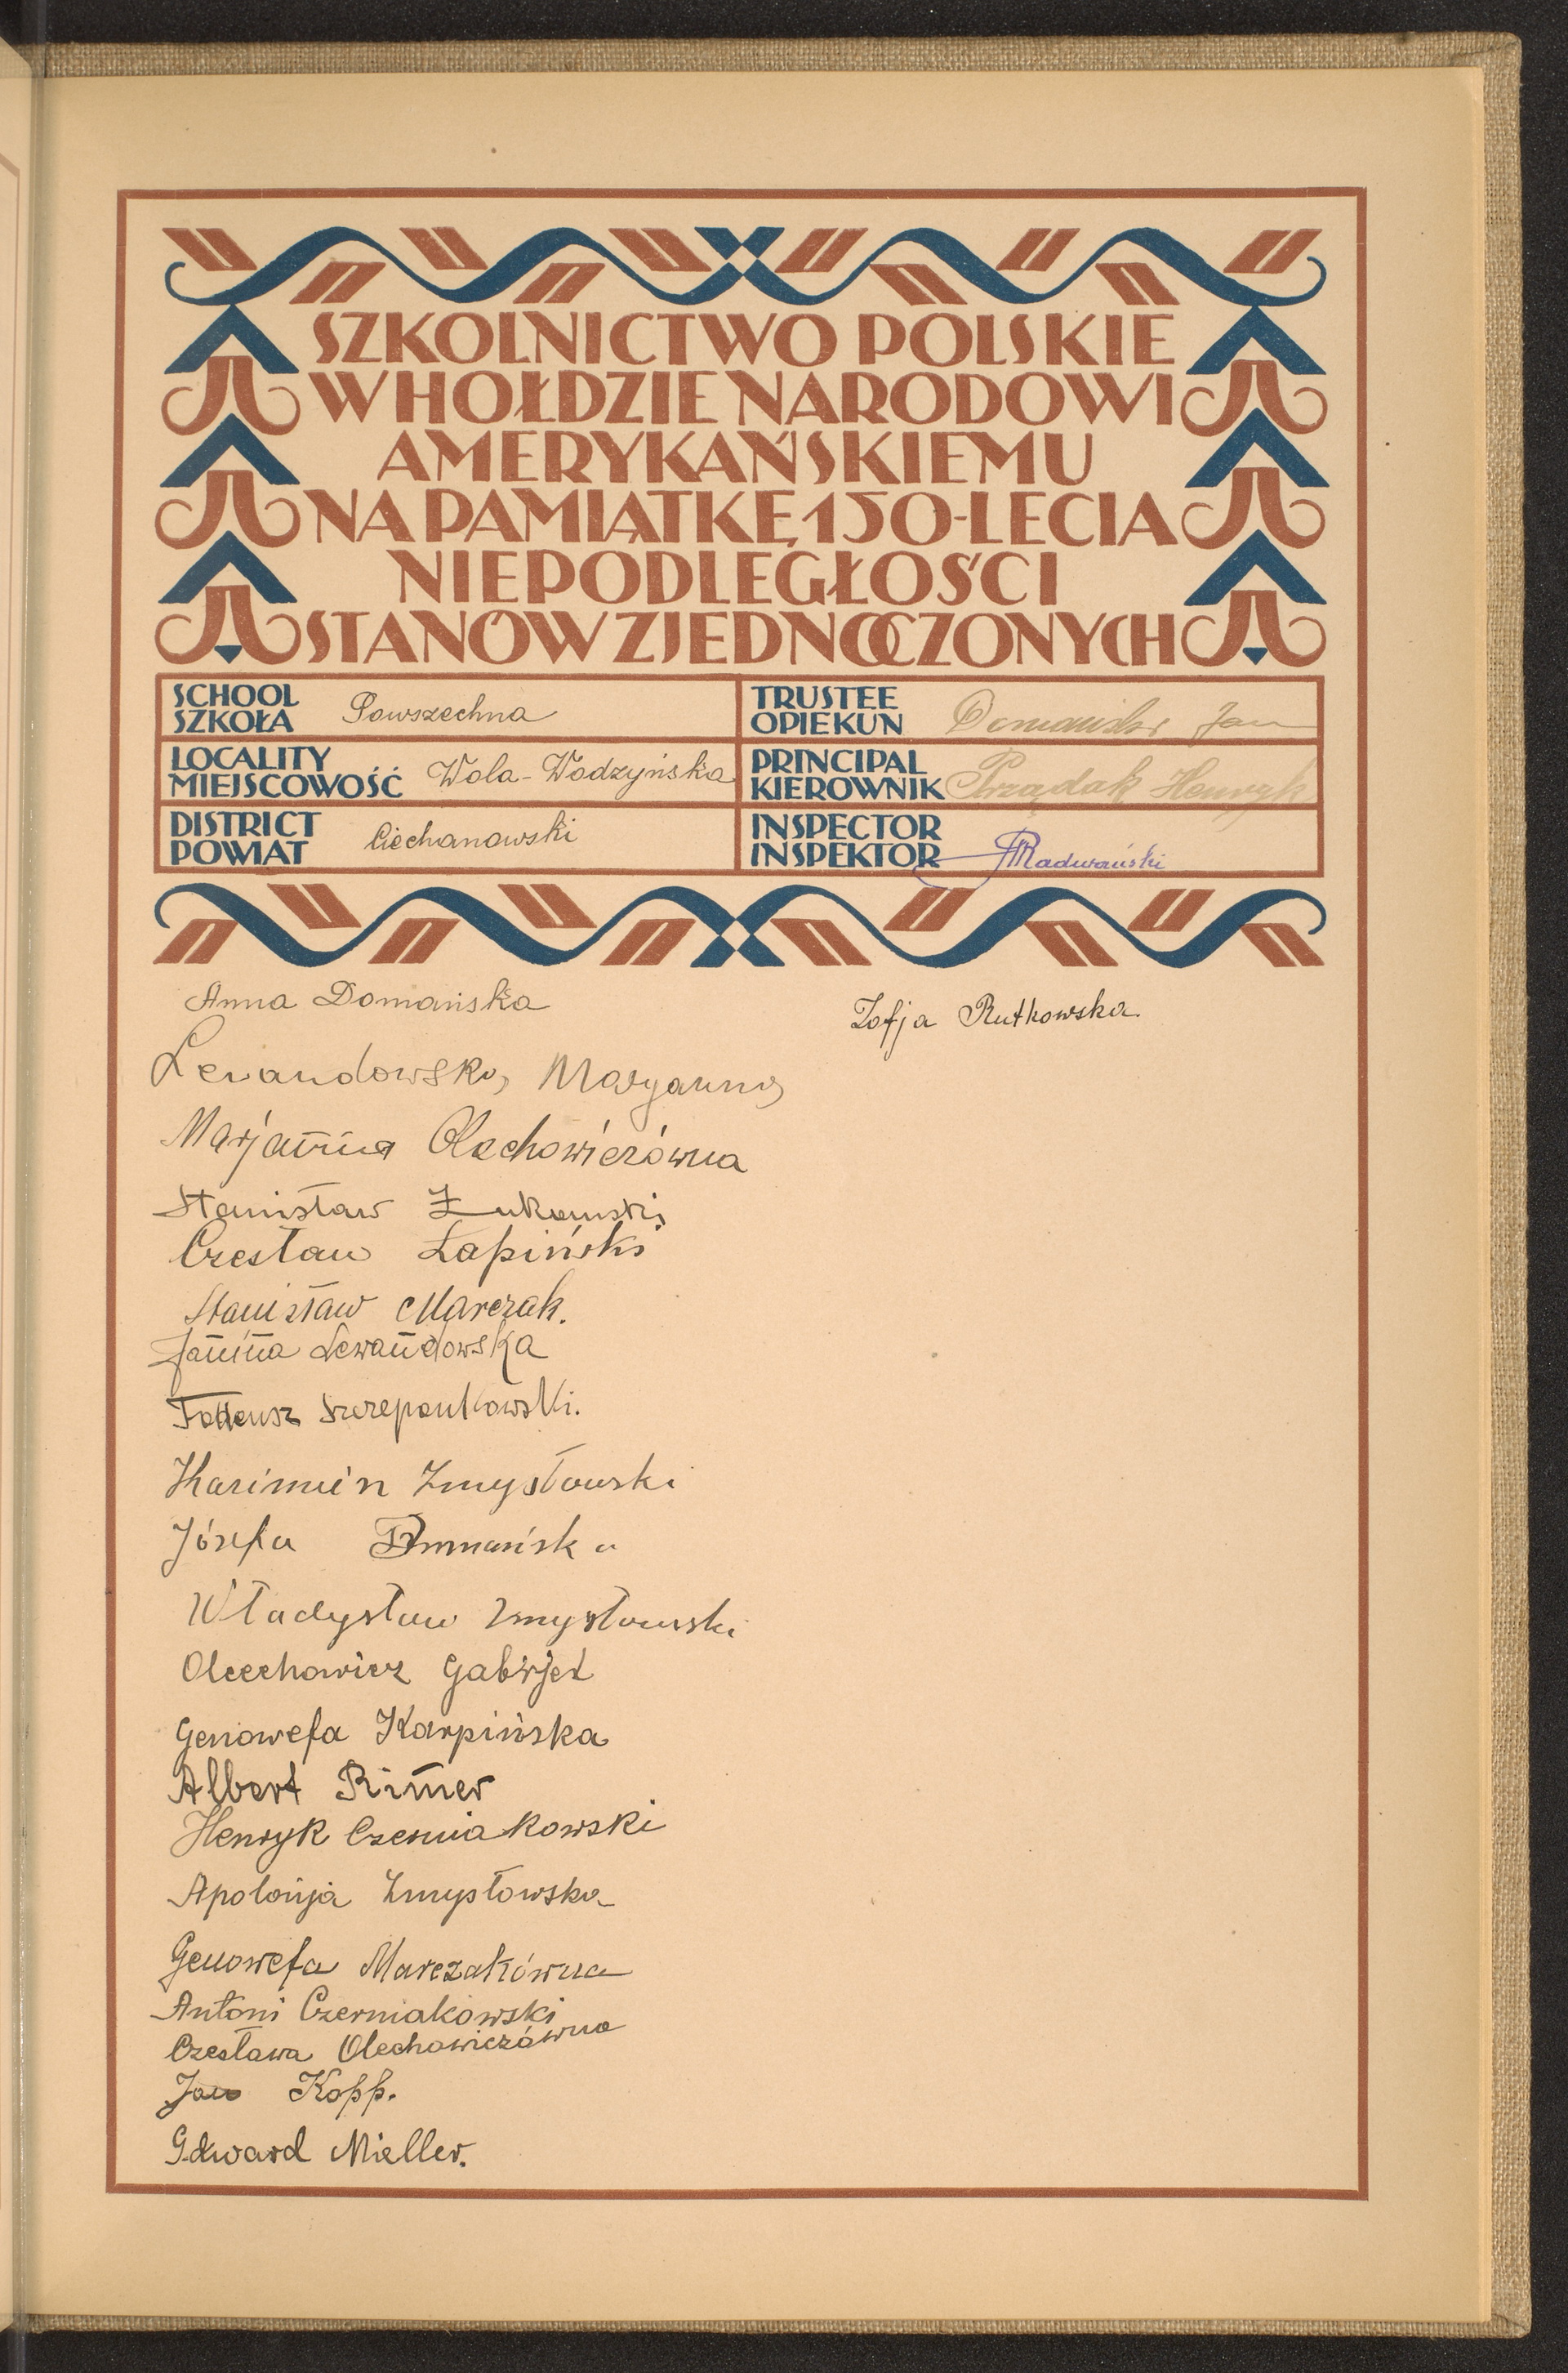 SZKOLNICTWO POLSKIE
W HOŁDZIE NARODOWI
AMERYKAŃSKIEMU
NA PAMIĄTKĘ 150-LECIA
NIEPODLEGŁOŚCI
STANÓW ZJEDNOCZONYCH
SCHOOL
SZKOŁA Powszechna
TRUSTEE
OPIEKUN Domański Jan
LOCALITY
MIEJSCOWOŚĆ Wola-Wodzyńska
PRINCIPAL
KIEROWNIK Prządak Henryk
DISTRICT
POWIAT Ciechanowski
INSPECTOR
INSPEKTOR Radwański
Anna Domańska
Lewandowska Maryanna
Marjanna Olechowiczówna
Stanisław Żukowski
Czesław Łapiński
Stanisław Marczak.
Janina Lewandowska
Tadeusz Szczepankowski.
Kazimierz Zmysłowski
Józefa Domańska
Władysław Zmysłowski
Olechowicz Gabrjel
Genowefa Karpińska
Albert Rimer
Henryk Czerniakowski
Apolonja Zmysłowska
Genowefa Marczakówna
Antoni Czerniakowski
Czesława Olechowiczówna
Jan Kopp.
Edward Mieller.
Zofja Rutkowska